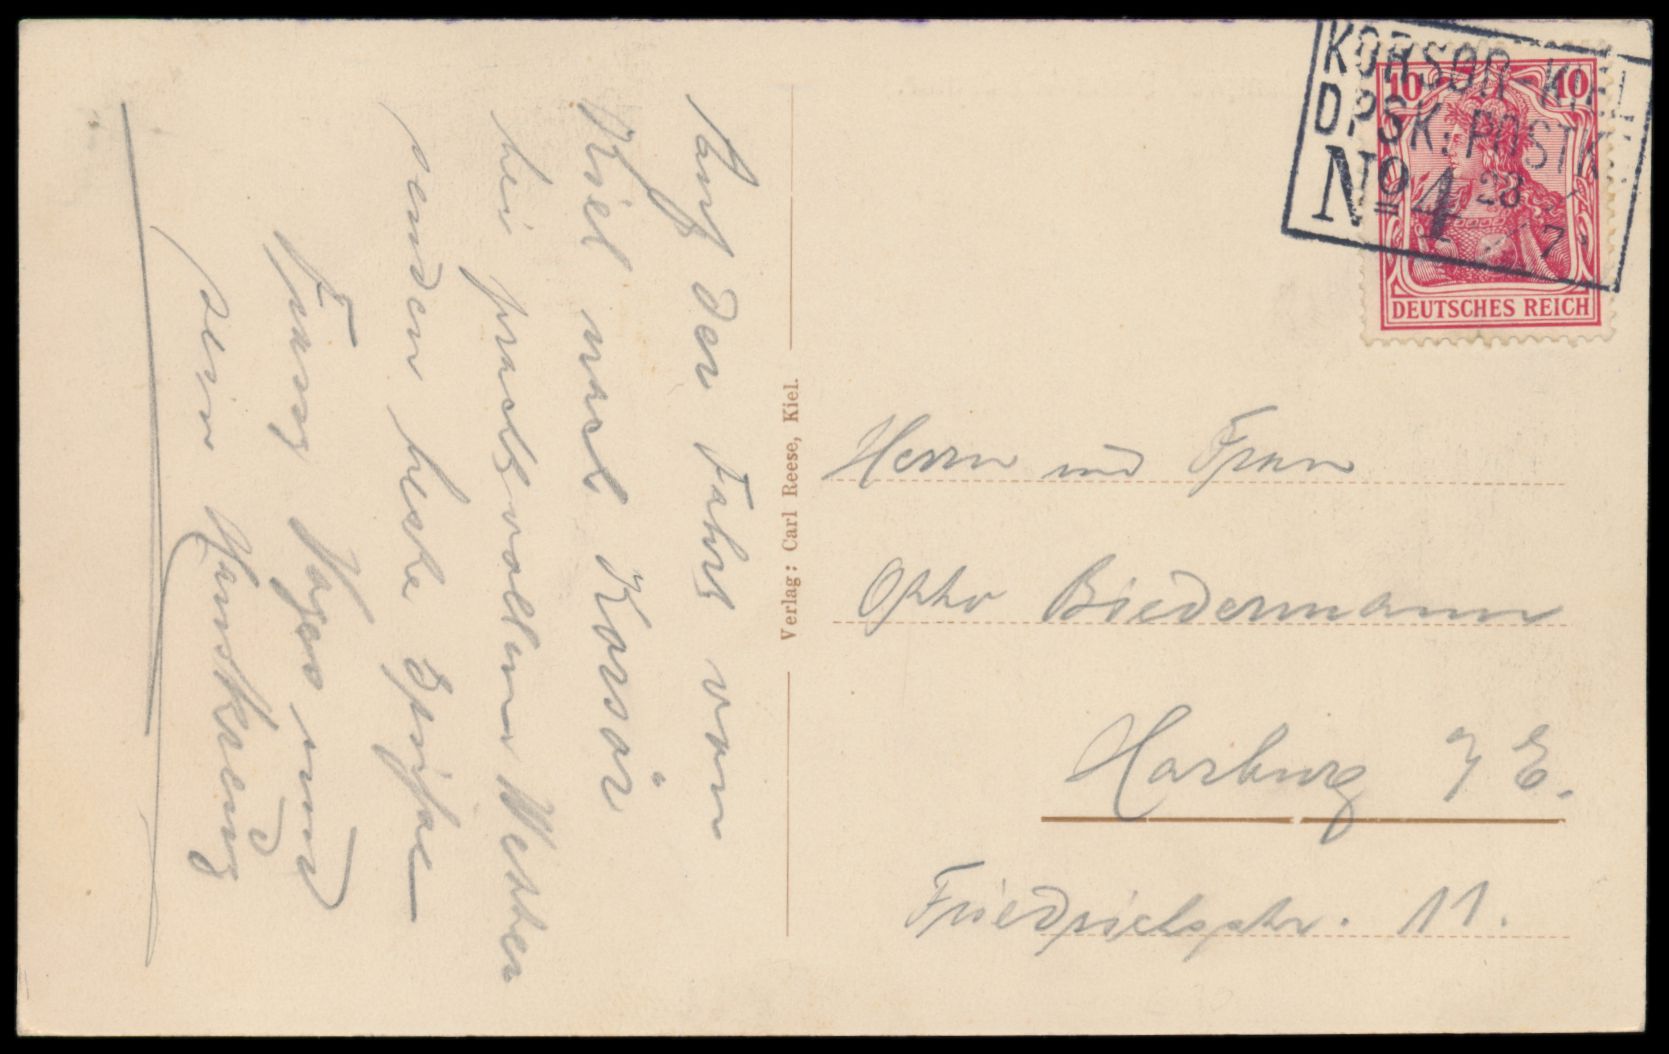 KORSØR-KIEL
DPSK: POSTK.
No 4 23
7
10 10
DEUTSCHES REICH
Auf der Fahrt von
Kiel nach Korsör
bei prachtvollem Wetter
senden beste Grüße
Franz Voges und
sein
Verlag: Carl Reese, Kiel.
Herrn und Frau
Otto Biedermann
Harburg a/E.
Friedrichstr. 11.